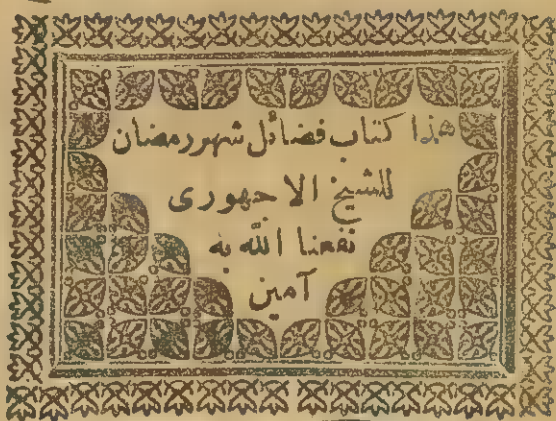 هذا كتاب فضائل شهر رمضان
للشيخ الاجهورى
نفعنا الله به
آمين